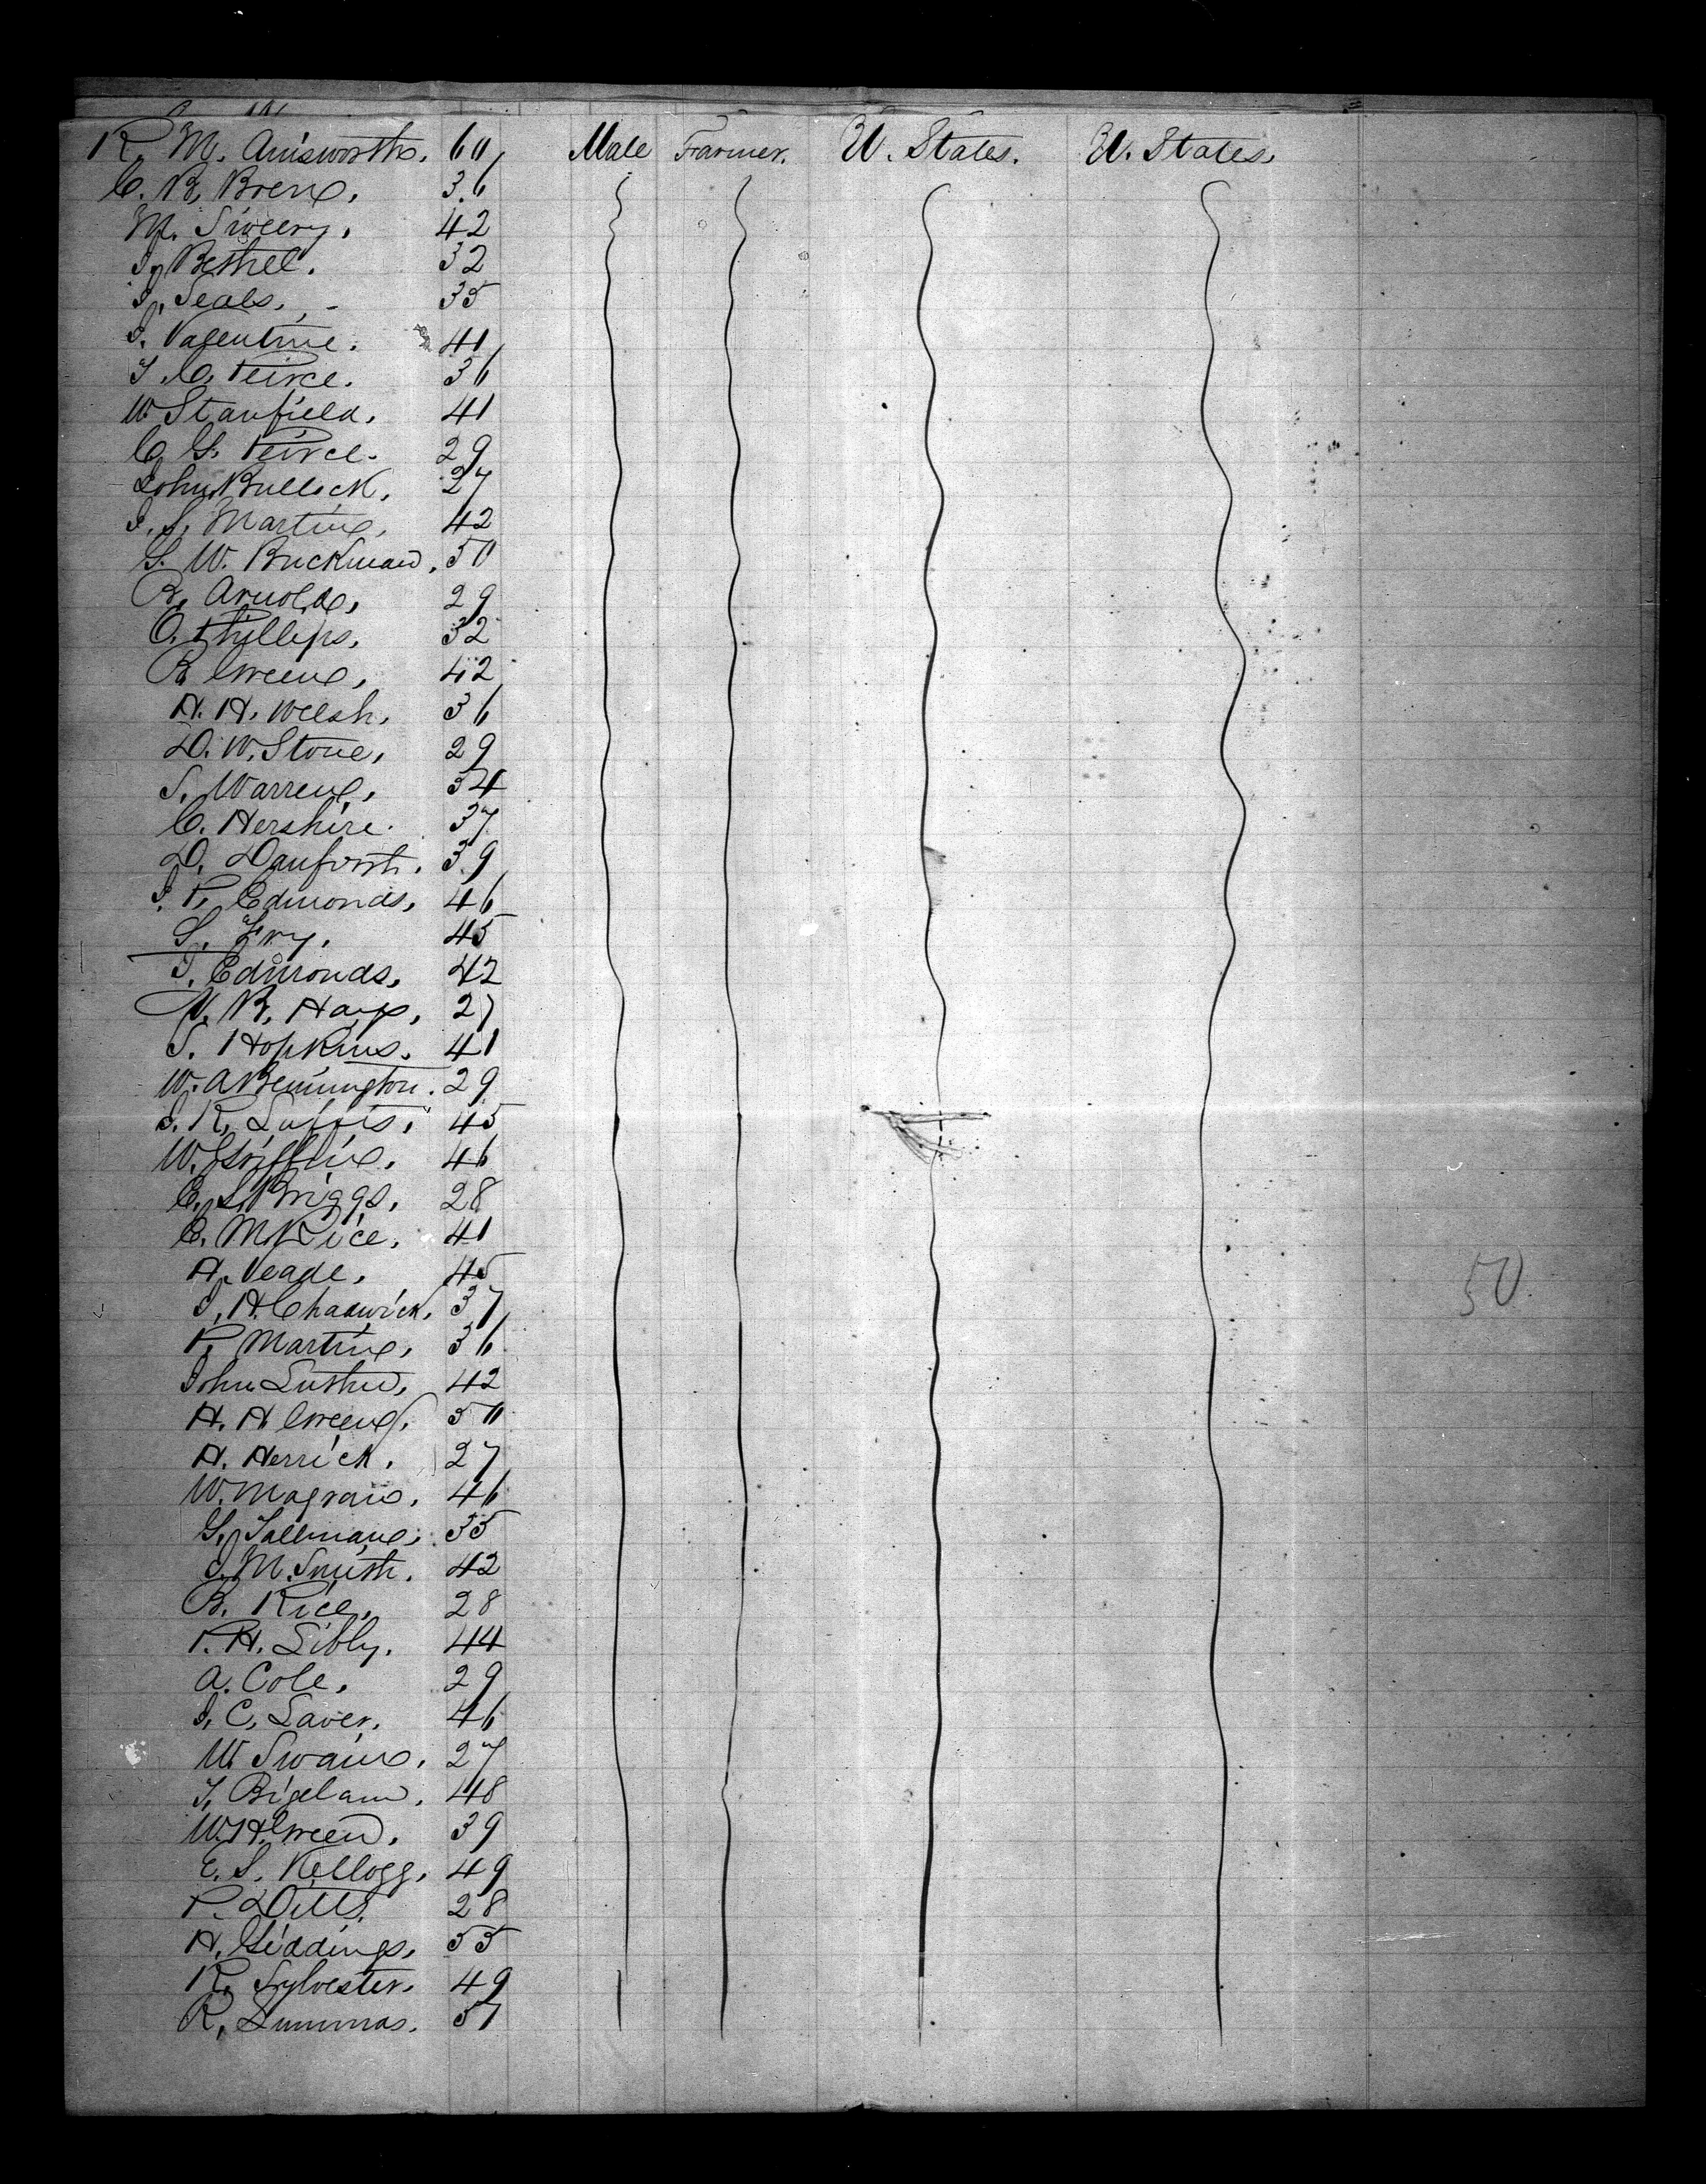 R. M. Ainsworth. 60, Male Farmer. U. States. U. States.
C. B. Bren, 36
M. Sweery, 42
J. Bethel. 32
J. Seals, 35
J. Valentine. 41
T. C. Peirce. 36
W Stanfield, 41
C. G. Peirce. 29
John Bullock, 27
J. S. Martin, 42
G. W. Buckman, 50
B. Arnold, 29
O. Phillips, 32
B Green, 42
H. H. Welsh, 36
D. W. Stone, 29
S. Warren, 54
C. Hershire. 37
D. Danforth. 39
J. P. Edmonds, 46
S. Fry. 45
J. Edmonds, 42
N. B. Hays, 27
S. Hopkins. 41
W. A Bennington. 29
J. R. 45
W. Griffin, 46
E. S. Briggs, 28
E. M. Rice, 41
H. Veade, 45
J. H. Chadwick, 37
P. Martin, 36
John 42
H. H Green, 50
H. Herrick, 27
W. Magrain, 46
G. Tallman, 35
J. M. Smith. 42
B. Rice, 28
P. H. Libly. 44
A. Cole, 29
J. C. Laver, 46
W. Swain, 27
T. 48
W. H. Green, 39
E. S. Kellogg, 49
P. Ditts. 28
H. Giddings, 55
R. Sylvester. 49
R. Lummas. 57
50